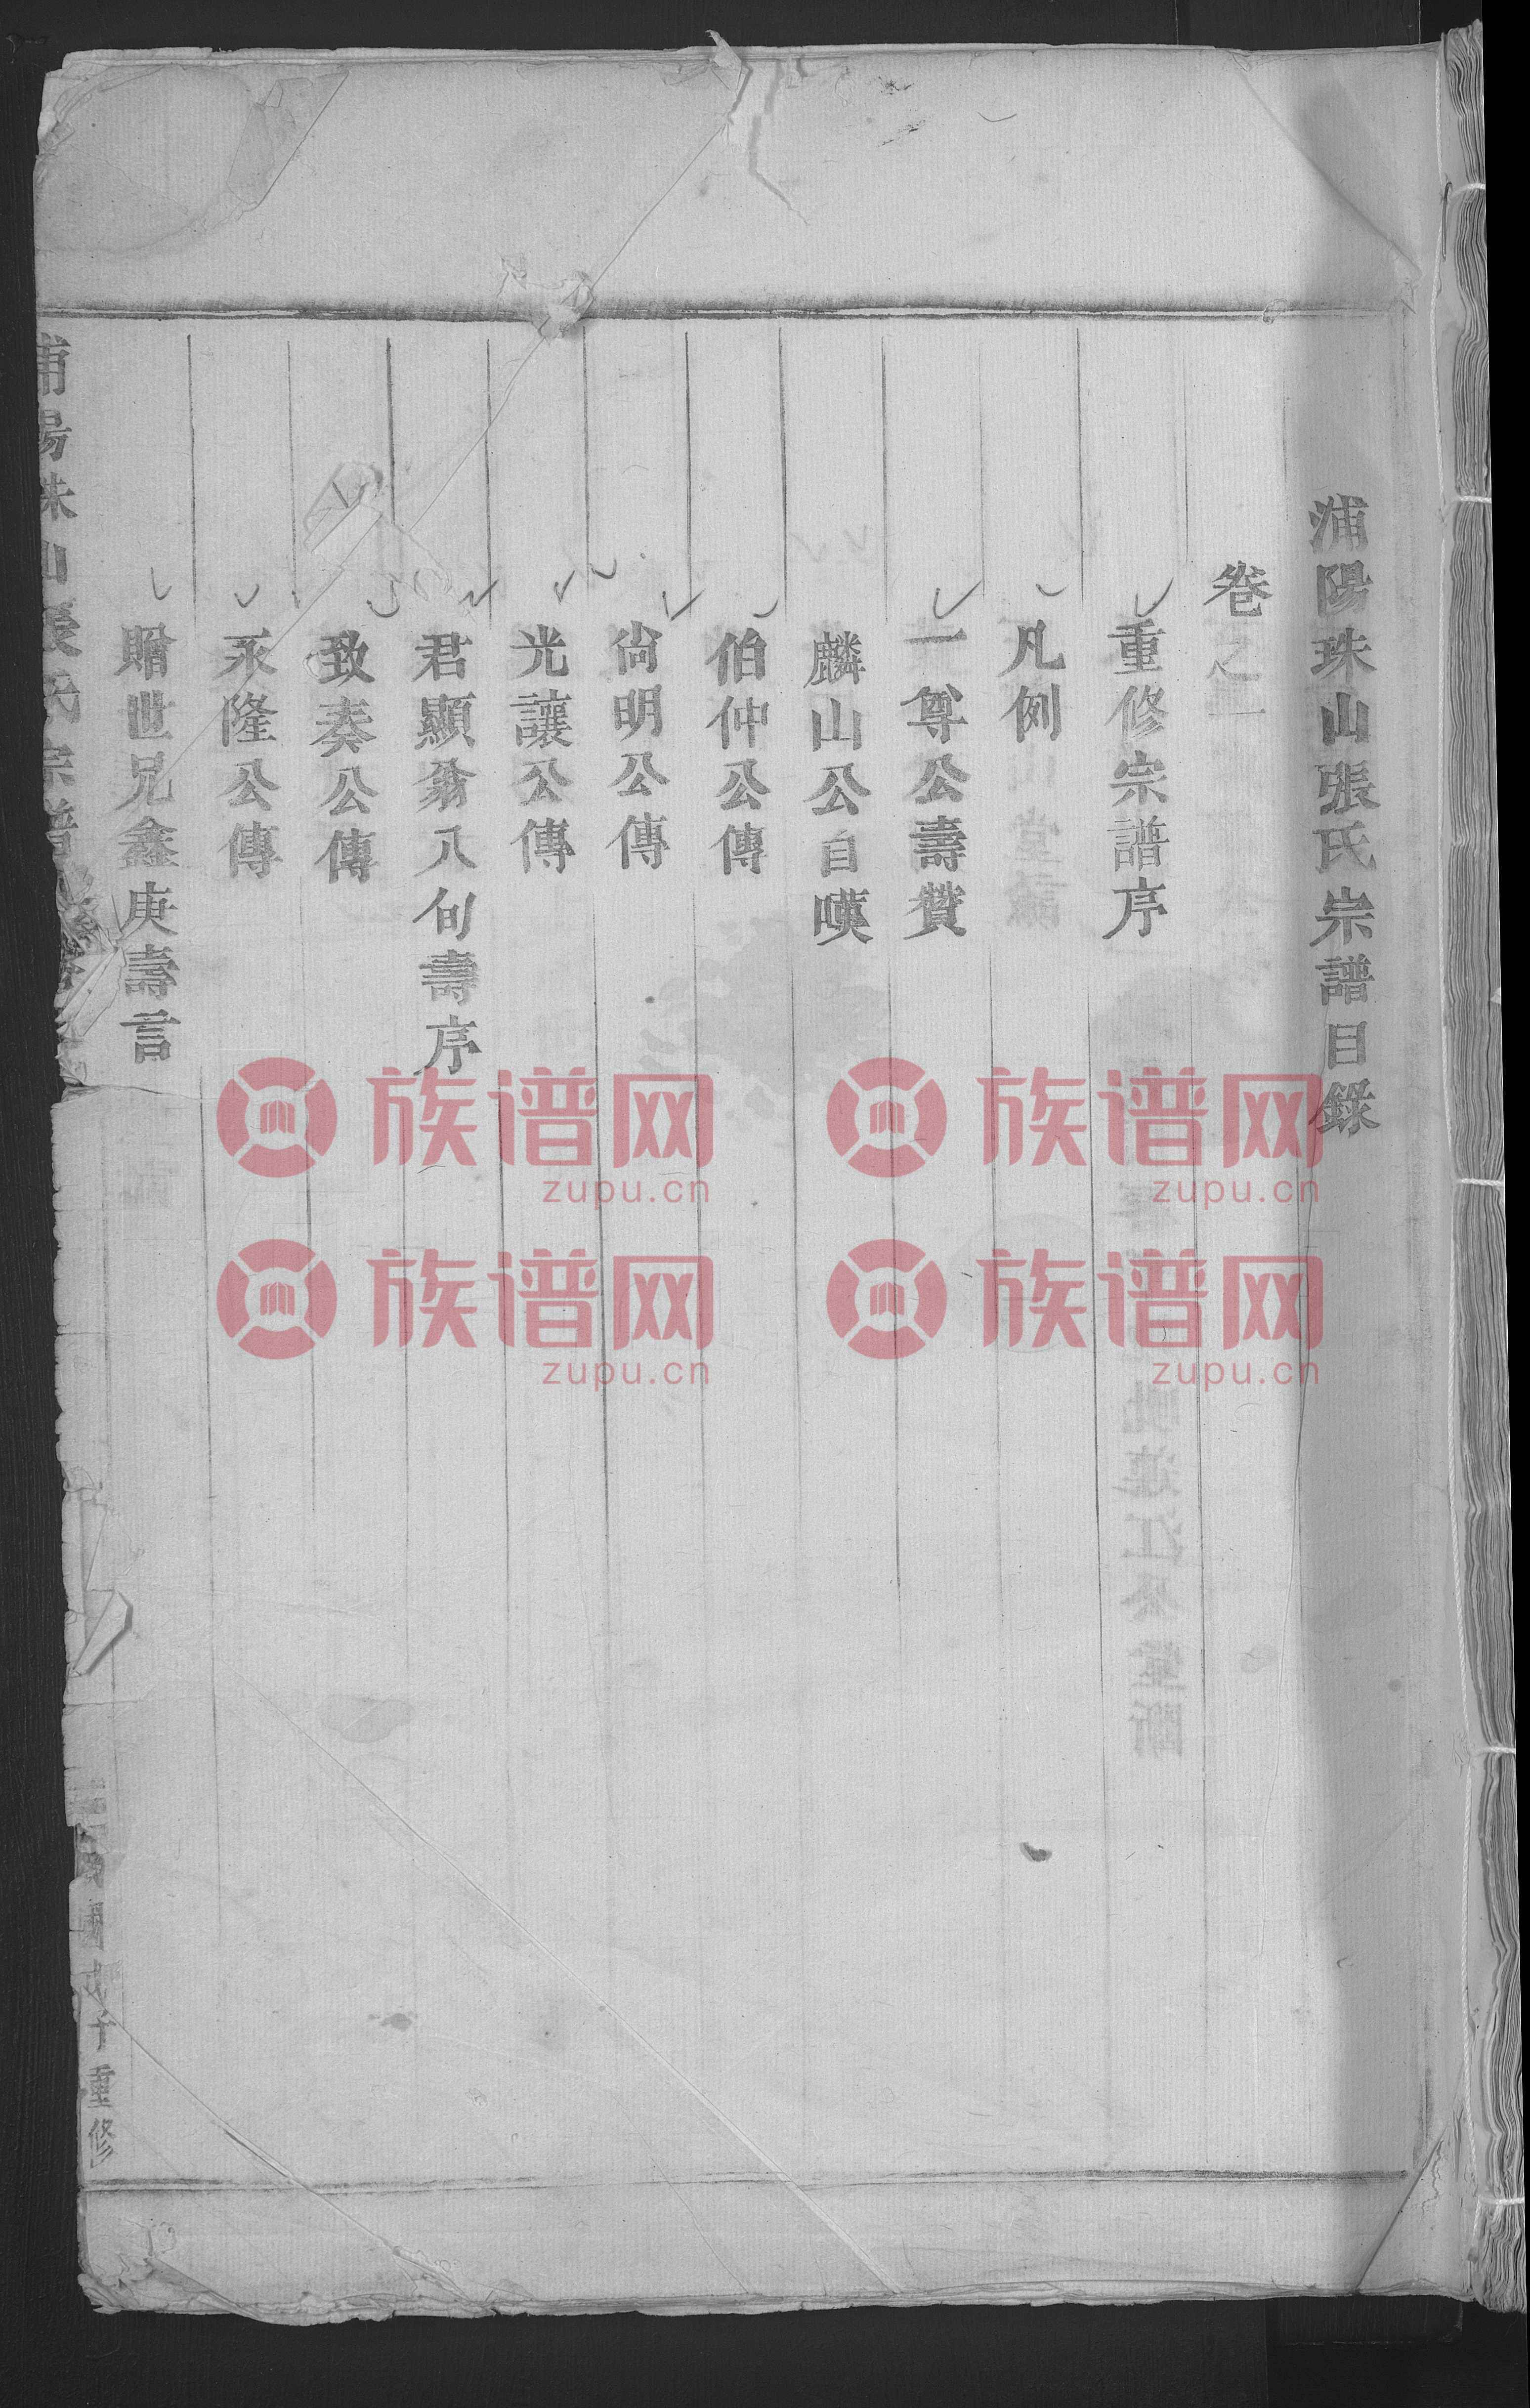 浦陽珠山張氏宗譜目錄
卷之一
重修宗譜序
凡例
一尊公壽贊
麟山公自嘆
伯仲公傳
尙明公傳
光讓公傳
君顯翁八旬壽序
致奏公傳
永隆公傳
贈世兄鑫庚壽言
浦陽珠山張氏宗譜
重修
族谱网
zupu.cn
族谱网
zupu.cn
族谱网
zupu.cn
族谱网
zupu.cn